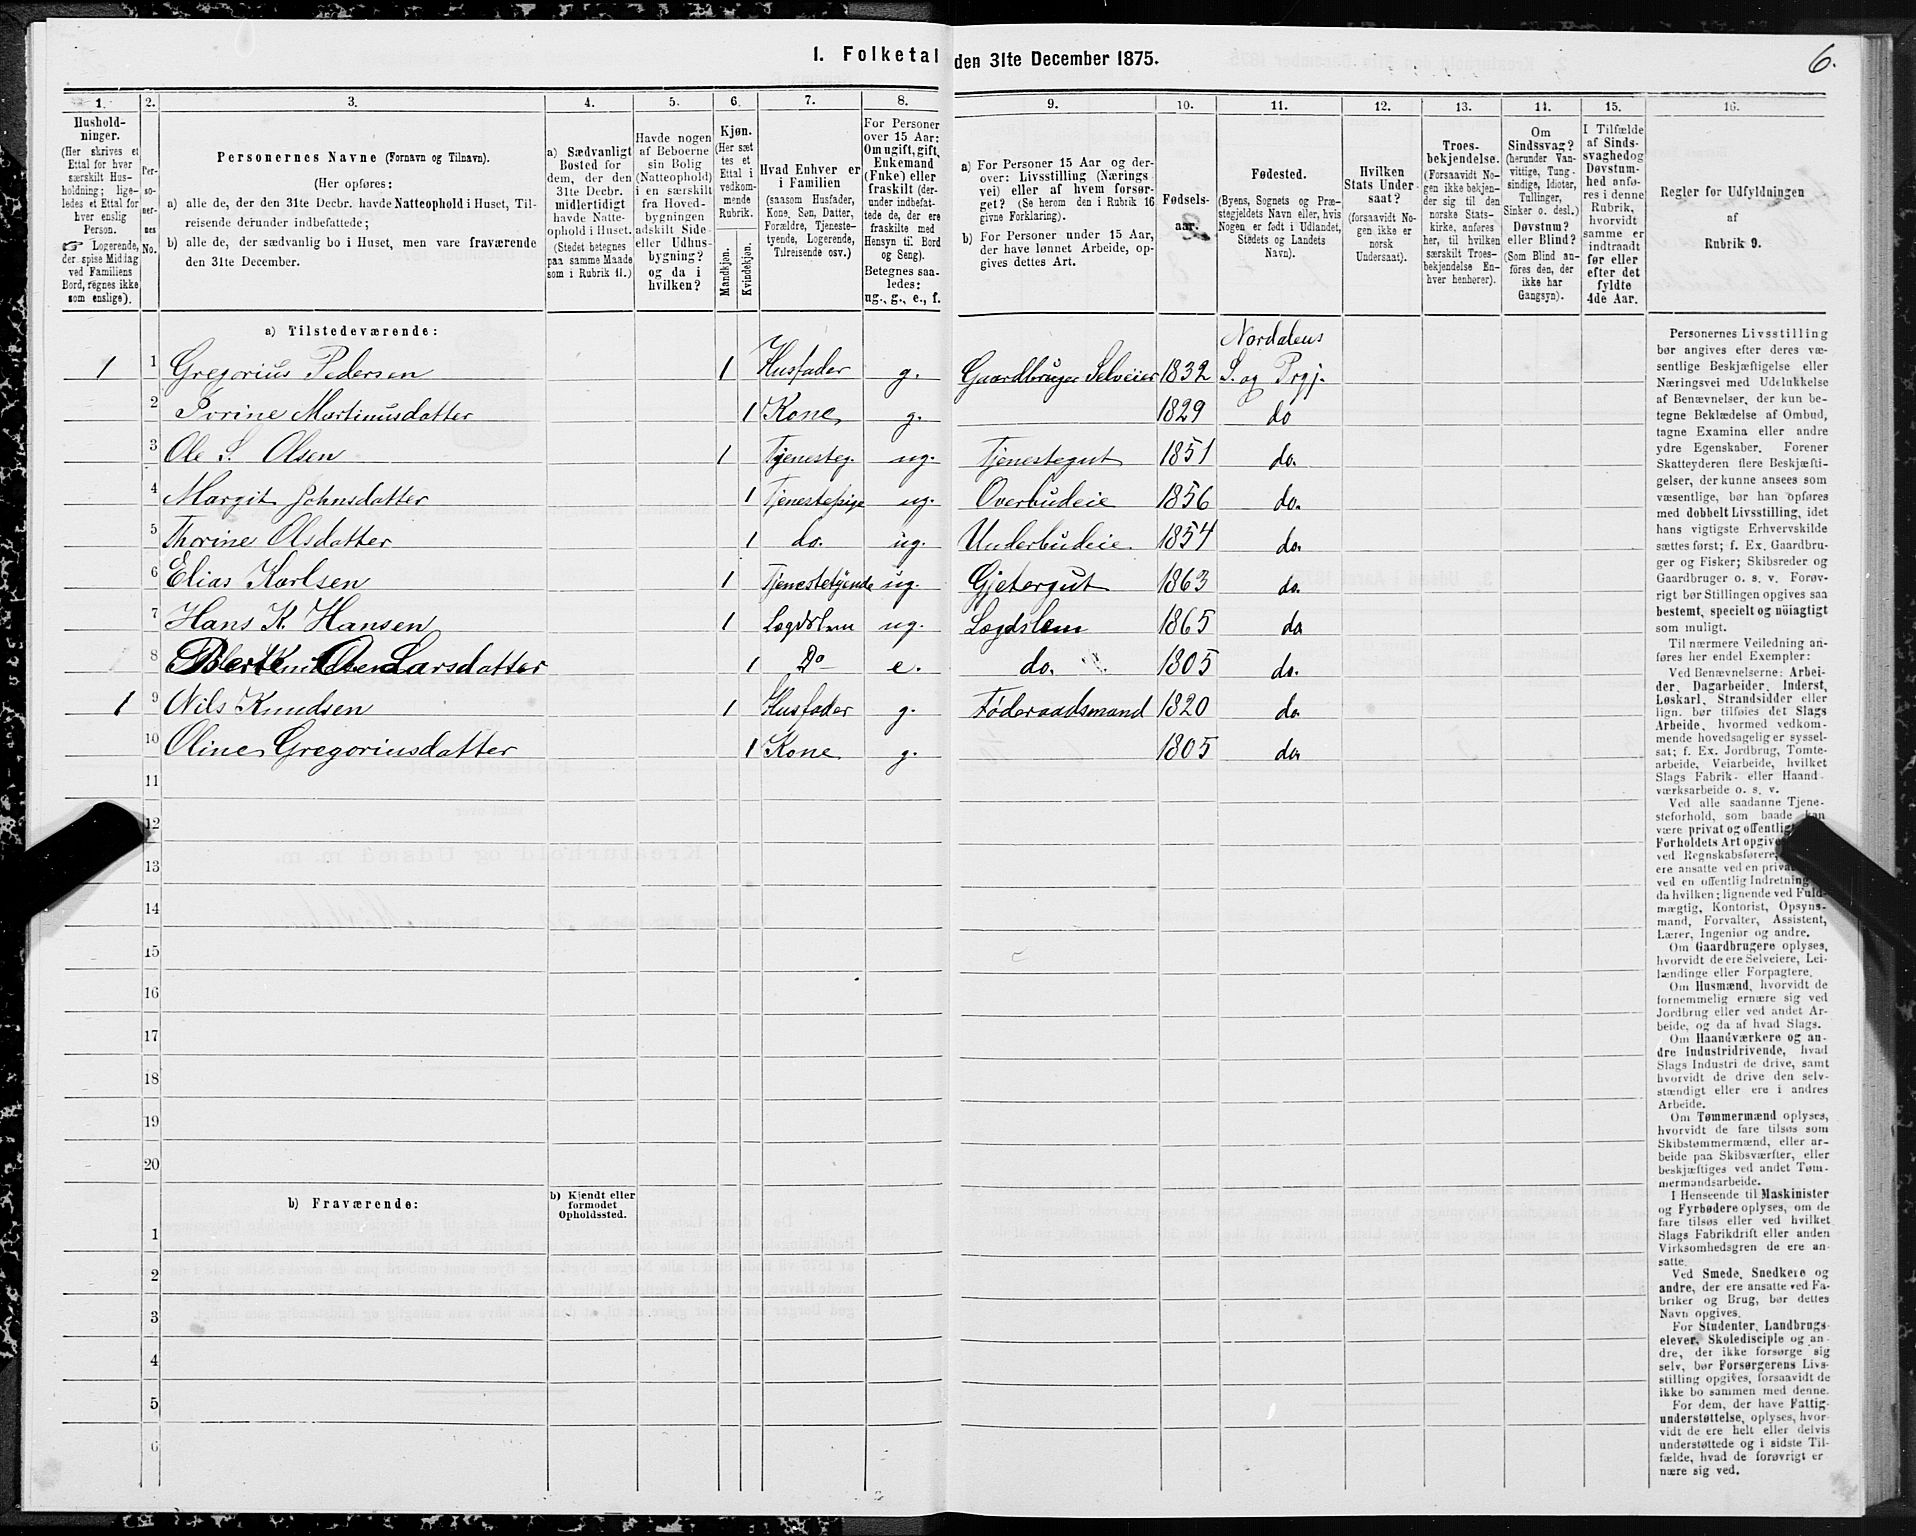 I. Folketal den 31te December 1875.
6.
1. 2. 3. 4. 5. 6. 7. 8. 9. 10. 11. 12. 13. 14. 15. 16.
Hushold-
ninger.
(Her skrives et
Ettal for hver
særskilt Hus-
holdning; lige-
ledes et Ettal for
hver enslig
Person.
☞ Logerende,
der spise Middag
ved Familiens
Bord, regnes ikke
som enslige).
Per-
so-
ner-
nes
No.
Personernes Navne (Fornavn og Tilnavn).
(Her opføres:
a) alle de, der den 31te Decbr. havde Natteophold i Huset, Til-
reisende derunder indbefattede;
b) alle de, der sædvanlig bo i Huset, men vare fraværende
den 31te December.
a) Sædvanligt
Bosted for
dem, der den
31te Decbr.
midlertidigt
havde Natte-
ophold i Huset.
(Stedet betegnes
paa samme Maade
som i Rubrik 11.)
Havde nogen
af Beboerne
sin Bolig
(Natteophold)
i en særskilt
fra Hoved-
bygningen
adskilt Side-
eller Udhus-
bygning?
og da i
hvilken?
Kjøn.
(Her sæt-
tes et
Ettal i
vedkom-
mende
Rubrik.
Mandkjøn.
Kvindekjøn.
Hvad Enhver er
i Familien
(saasom Husfader,
Kone, Søn, Datter,
Forældre, Tjeneste-
tyende, Logerende,
Tilreisende osv.)
For Personer
over 15 Aar:
Om ugift, gift,
Enkemand
(Enke) eller
fraskilt (der-
under indbefat-
tede de, der ere
fraskilte med
Hensyn til Bord
og Seng).
Betegnes saa-
ledes:
ug., g., e., f.
a) For Personer 15 Aar og der-
over: Livsstilling (Nærings-
vei) eller af hvem forsør-
get? (Se herom den i Rubrik 16
givne Forklaring).
b) For Personer under 15 Aar,
der have lønnet Arbeide, op-
gives dettes Art.
Fødsels-
aar.
Fødested.
(Byens, Sognets og Præ-
stegjeldets Navn eller, hvis
Nogen er født i Udlandet,
Stedets og Landets
Navn).
Hvilken
Stats Under-
saat?
(forsaavidt No-
gen ikke er
norsk
Undersaat).
Troes-
bekjendelse.
(Forsaavidt No-
gen ikke bekjen-
der sig til den
norske Stats-
kirke, anføres
her, til hvilken
særskilt Troes-
bekjendelse En-
hver henhører).
Om
Sindssvag?
(herunder Van-
vittige, Tung-
sindige, Idioter,
Tullinger,
Sinker o. desl.)
Døvstum?
eller Blind?
(Som Blind an-
føres den, der
ikke har
Gangsyn).
I Tilfælde
af Sinds-
svaghed og
Døvstum-
hed anfø-
res i denne
Rubrik,
hvorvidt
samme er
indtraadt
før eller
efter det
fyldte
4de Aar.
Regler for Udfyldningen
af
Rubrik 9.
a) Tilstedeværende:
Nordalens
1 1 Gregorius Pedersen 1 Husfader g. Gaardbruger Selveier 1832 S. og Prgj.
2 Perine Martinusdatter 1 Kone g. 1829 do
3 Ole S. Olsen 1 Tjenesteg. ug. Tjenestegut 1851 do.
4 Margit Johnsdatter 1 Tjenestepige ug. Overbudeie 1856 do.
5 Thorine Olsdatter 1 do. ug. Underbudeie 1854 do.
6 Elias Karlsen 1 Tjenestetyende ug. Gjetergut 1863 do.
7 Hans K. Hansen 1 Lægdslem ug. Lægdslem 1865 do
8 Larsdatter 1 Do e. do. 1805 do.
1 9 Nils Knudsen 1 Husfader g. Føderaadsmand 1820 do
10 Oline Gregoriusdatter 1 Kone g. 1805 do
11
12
13
14
15
16
17
18
19
20
b) Fraværende:
b) Kjendt eller
formodet
Opholdssted.
1
2
3
4
5
6
Personernes Livsstilling
bør angives efter deres væ-
sentlige Beskjæftigelse eller
Næringsvei med Udelukkelse
af Benævnelser, der kun be-
tegne Beklædelse af Ombud,
tagne Examina eller andre
ydre Egenskaber. Forener
Skatteyderen flere Beskjæfti-
gelser, der kunne ansees som
væsentlige, bør han opføres
med dobbelt Livsstilling, idet
hans vigtigste Erhvervskilde
sættes først; f. Ex. Gaardbru-
ger og Fisker; Skibsreder og
Gaardbruger o. s. v. Forøv-
rigt bør Stillingen opgives saa
bestemt, specielt og nöiagtigt
som muligt.
Til nærmere Veiledning an-
føres her endel Exempler:
Ved Benævnelserne: Arbei-
der, Dagarbeider, Inderst,
Løskarl, Strandsidder eller
lign. bør tilføies det Slags
Arbeide, hvormed vedkom-
mende hovedsagelig er syssel-
sat; f. Ex. Jordbrug, Tomte-
arbeide, Veiarbeide, hvilket
Slags Fabrik- eller Haand-
værksarbeide o. s. v.
Ved alle saadanne Tjene-
steforhold, som baade kan
være privat og offentlig
Forholdets Art opgives
ved Regnskabsførere,
ere ansatte ved en privat
ved en offentlig Indretning
da hvilken; lignende ved Fuld-
mægtig, Kontorist, Opsyns-
mand, Forvalter, Assistent,
Lærer, Ingeniør og andre.
Om Gaardbrugere oplyses,
hvorvidt de ere Selveiere, Lei-
lændinge eller Forpagtere.
Om Husmænd, hvorvidt de
fornemmelig ernære sig ved
Jordbrug eller ved andet Ar-
beide, og da af hvad Slags.
Om Haandværkere og an-
dre Industridrivende, hvad
Slags Industri de drive, samt
hvorvidt de drive den selv-
stændigt eller ere i andres
Arbeide.
Om Tømmermænd oplyses,
hvorvidt de fare tilsøs som
Skibstømmermænd, eller ar-
beide paa Skibsværfter, eller
beskjæftiges ved andet Tøm-
mermandsarbeide.
I Henseende til Maskinister
og Fyrbødere oplyses, om de
fare tilsøs eller ved hvilket
Slags Fabrikdrift eller anden
Virksomhedsgren de ere an-
satte.
Ved Smede, Snedkere og
andre, der ere ansatte ved Fa-
briker og Brug, bør dettes
Navn opgives.
For Studenter, Landbrugs-
elever, Skoledisciple og an-
dre, der ikke forsørge sig
selv, bør Forsørgerens Livs-
stilling opgives, forsaavidt de
ikke bo sammen med denne.
For dem, der have Fattig-
understøttelse, oplyses, hvor-
vidt de ere helt eller delvis
understøttede og i sidste Til-
fælde, hvad de forøvrigt er-
nære sig ved.